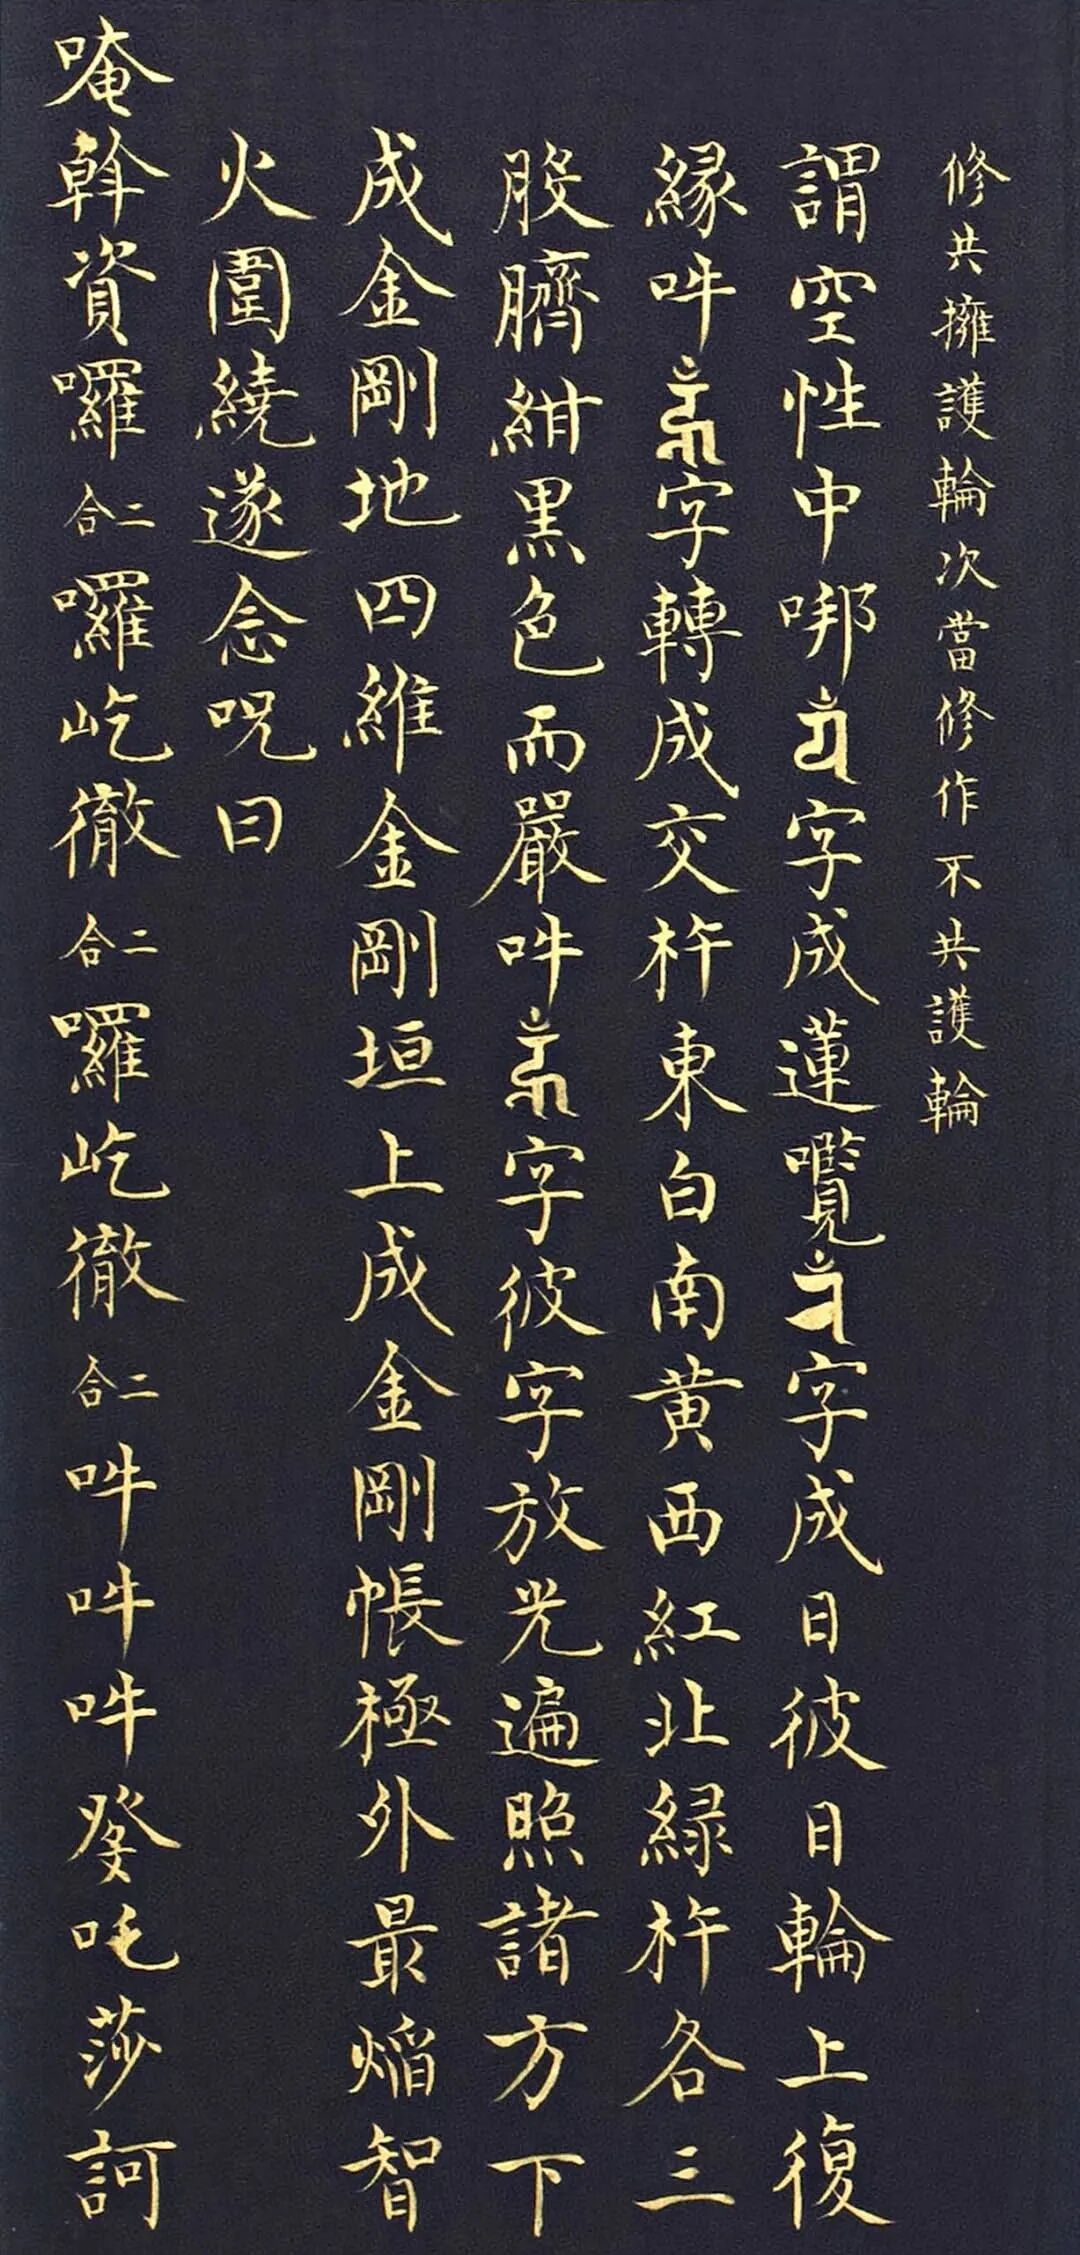 修共擁護輪次當修作不共護輪
謂空性中𠳐字成蓮囕字成日彼日輪上復
縁吽字轉成交杵東白南黄西紅北緑杵各三
股臍紺黑色而嚴吽字彼字放光遍照諸方下
成金剛地四維金剛垣上成金剛帳極外最熖智
火圍繞遂念呪曰
唵斡資囉二合囉屹徹二合囉屹徹二合吽吽吽癹吒莎訶